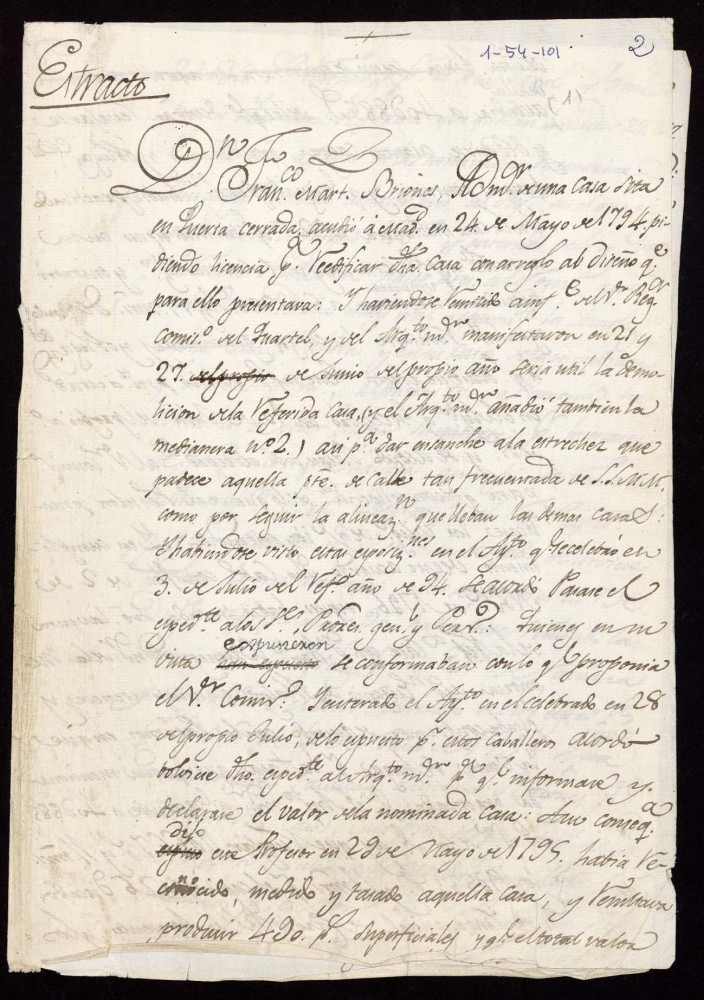 1-54-101
2
Extracto
Dn. Franco. Mart. Briones, Admr. de una Casa sita
en Puerta cerrada, acudió á Mad. en 24. de Mayo de 1794. pi-
diendo licencia pa. Reedificar dha. Casa con arreglo al Diseño qe.
para ello presentava: Y haviendose Remitido a infe. del Sr. Regr.
Comiso. del Quartel, y del Arqto. mr. manifestaron en 21 y
27. del propio de Junio del propio año seria util la demo-
licion de la Referida Casa, (y el Arqto. mr. añadió tambien la
medianera no. 2.) asi pa. dar ensanche ala estrechez que
padece aquella pte. de calle tan frecuentada de S.S.M.M.
como por seguir la alineazn. que lleban las demas casas:
Y habiendose visto estas exposiznes. en el Ayto. qe. se celebró en
3. de Julio del Refdo. año de 94. se acordó Pasase el
expedte. a los Ses. Prores. genl. y Perso.: Quienes en su
vista expusieron se conformaban con lo qe. proponia
el Sr. Comiso. Y enterado el Ayto. en el celebrado en 28
del propio Julio, de lo expuesto pr. estos Caballeros Acordó
bolviese dho. expedte. al Arqto. mr. pa. qe. informase y
declarase el valor de la nominada Casa: A su conseqa.
dijo este Profesor en 29 de Mayo de 1795. habia Re-
conocido, medido y tasado aquella Casa, y Resultava
producir 490. ps. superficiales y qe. el total valor